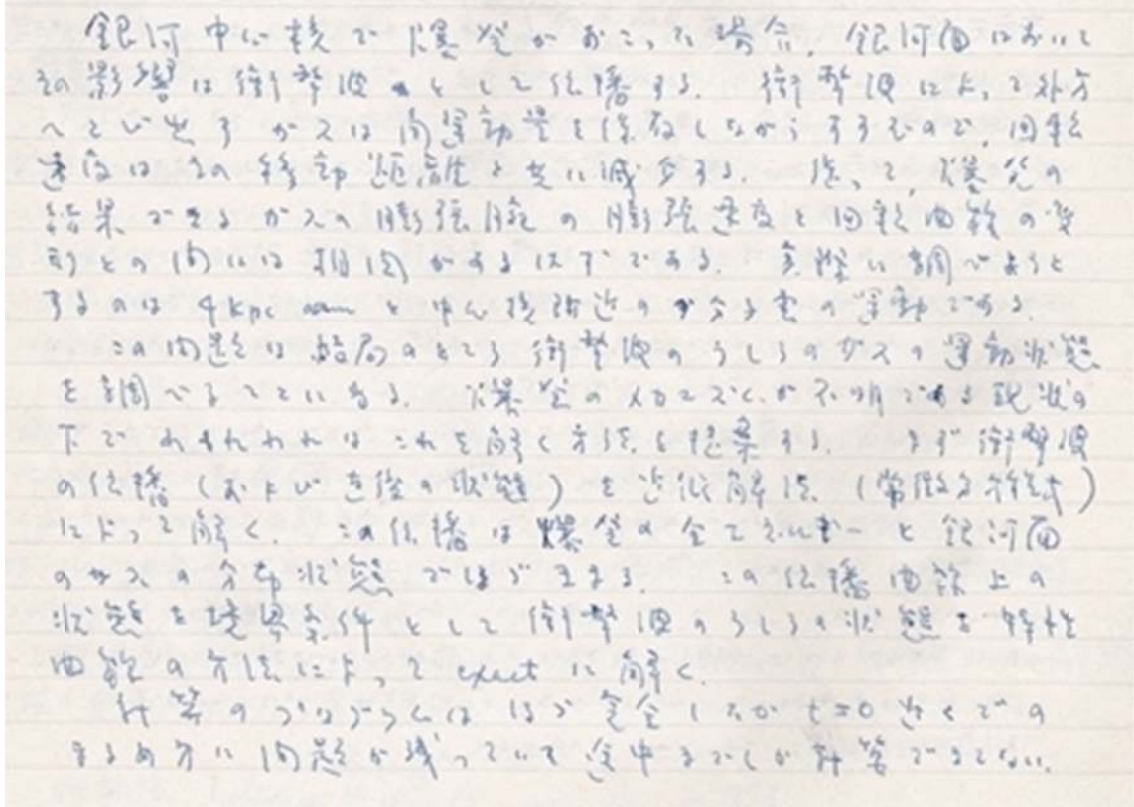 銀河中心核で爆発がおこった場合、銀河面において
その影響は衝撃波として伝播する。 衝撃波によって外方
へとび出すガスは角運動量を保存しながらすすむので、回転
速度はその移動距離と共に減少する。 従って、爆発の
結果できるガスの膨張腕の膨張速度と回転曲線の変
形との間には相関があるはずである。 実際に調べようと
するのは 4kpc arm と中心核附近の分子雲の運動である。
この問題は結局のところ衝撃波のうしろのガスの運動状態
を調べることになる。 爆発のメカニズムが不明である現状の
下でわれわれはこれを解く方法を提案する。 まず衝撃波
の伝播(および直後の状態)を近似解法(常微分方程式)
によって解く。 この伝播は爆発の全エネルギーと銀河面
のガスの分布状態でほぼ定まる。 この伝播曲線上の
状態を境界条件として衝撃波のうしろの状態を特性
曲線の方法によって exact に解く。
計算のプログラムはほぼ完全したが t=0 近くでの
まるめ方に問題が残っていて途中までしか計算できてない。